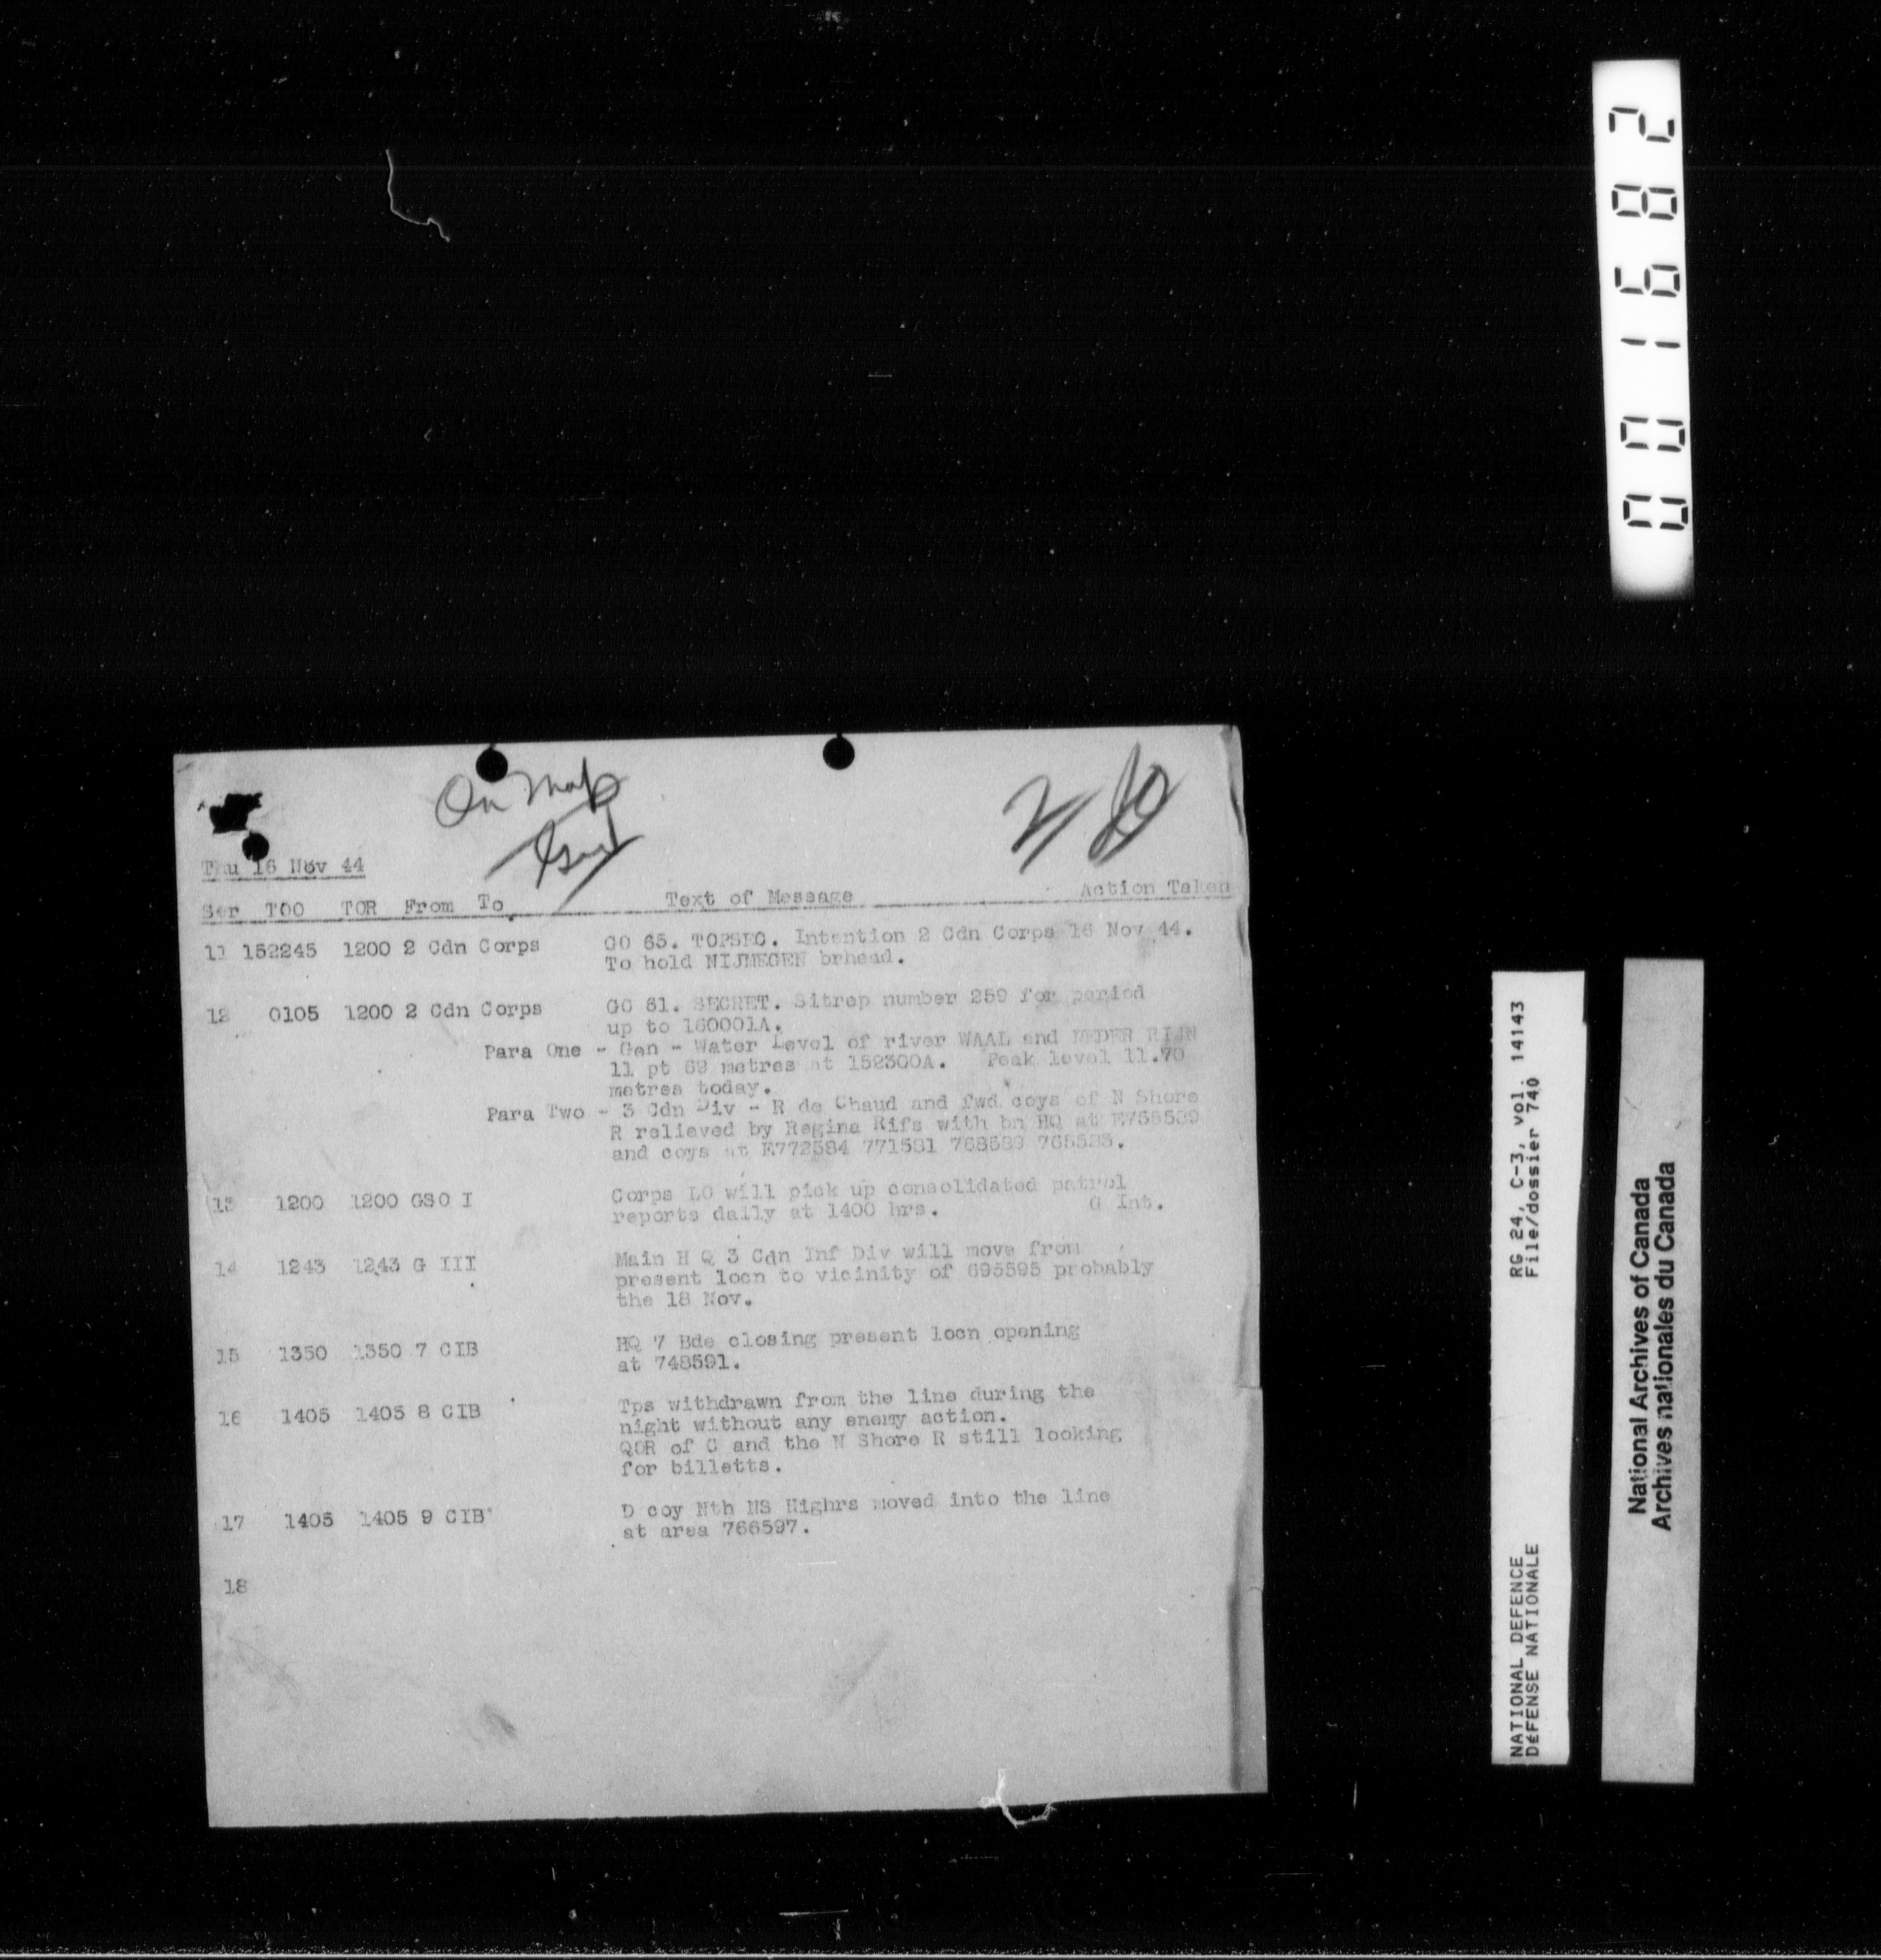 On Map
2
Thu 16 Nov 44
Ser TOO TOR From To Text of Message Action Taken
11 152245 1200 2 Cdn Corps GO 65. TOPSEC. Intention 2 Cdn Corps 16 Nov 44.
To hold NIJMEGEN brhead.
12 0105 1200 2 Cdn Corps GO 61. SECRET. Sitrep number 259 for period
up to 160001A.
Para One - Gen - Water Level of river WAAL and NEDER RIJN
11 pt 69 metres at 152300A. Peak level 11.70
metres today.
Para Two - 3 Cdn Div - R de Chaud and fwd coys of N Shore
R relieved by Regina Rifs with bn HQ at
and coys at E772584 771581 768589
13 1200 1200 GSO I Corps LO will pick up consolidated patrol
reports daily at 1400 hrs. G Int.
14 1243 1243 G III Main H Q 3 Cdn Inf Div will move from
present locn to vicinity of 695595 probably
the 18 Nov.
15 1350 1350 7 CIB HQ 7 Bde closing present locn opening
at 748591.
16 1405 1405 8 CIB Tps withdrawn from the line during the
night without any enemy action.
QOR of C and the N Shore R still looking
for billetts.
17 1405 1405 9 CIB D coy Nth NS Highrs moved into the line
at area 766597.
18
001682
RG 24, C-3, vol. 14143
File/dossier 740
NATIONAL DEFENCE
DéFENSE NATIONALE
National Archives of Canada
Archives nationales du Canada